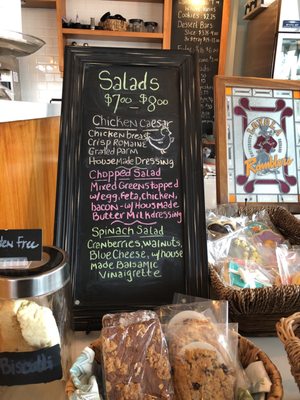 Salads
$7.00 - $8.00
Chicken Caesar
Chicken breast
Crisp Romaine
Grated Parm
Housemade Dressing
Chopped Salad
Mixed Greens topped
w/egg, feta, chicken,
bacon - w/ House Made
Butter Milk dressing
Spinach Salad
Cranberries, walnuts,
Blue Cheese, w/ house
made Balsamic
Vinaigrette
Cookies
Dessert Bars
Free
Biscotti